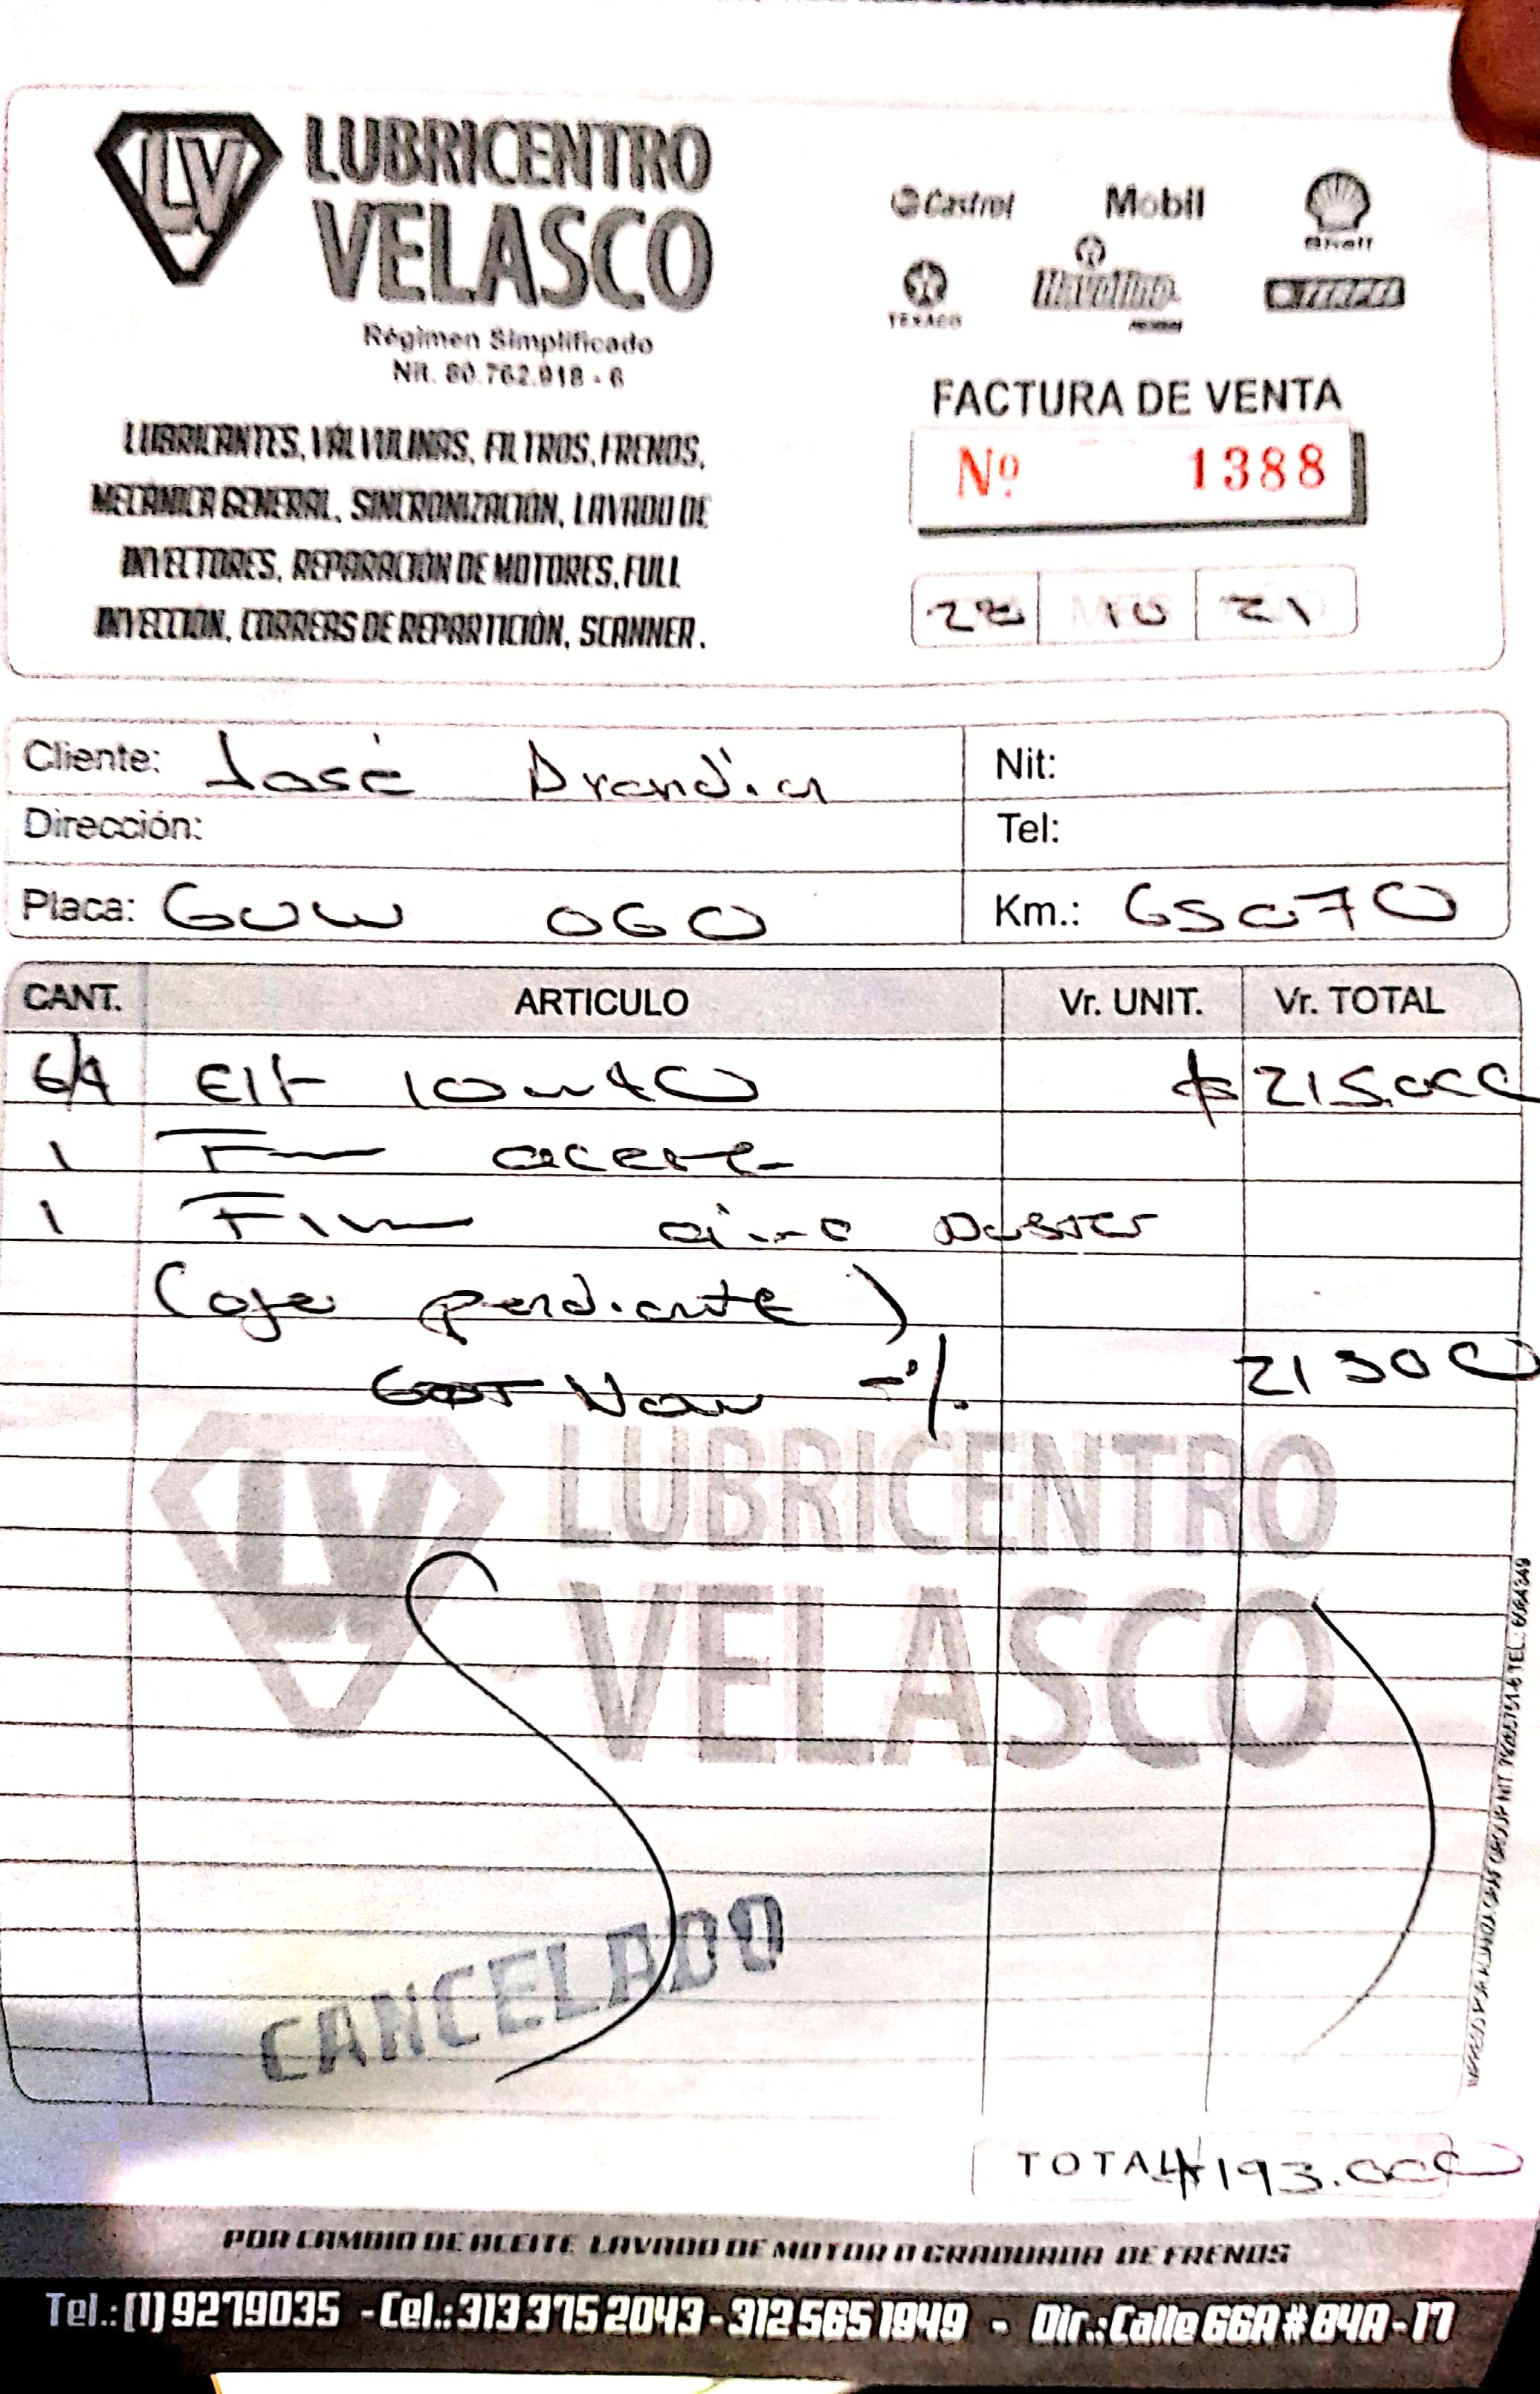 LV LUBRICENTRO
VELASCO
Régimen Simplificado
Nit. 80.762.918 - 6
LUBRICANTES, VALVULINAS, FILTROS, FRENOS,
MECÁNICA GENERAL, SINCRONIZACIÓN, LAVADO DE
INYECTORES, REPARACIÓN DE MOTORES, FULL
INYECCIÓN, CORREAS DE REPARTICIÓN, SCANNER.
Castrol Mobil Shell
TEXACO Havoline
FACTURA DE VENTA
Nº 1388
22 10 21
Cliente: José
Nit:
Dirección:
Tel:
Placa: GUW 060
Km.: 65070
CANT. ARTICULO Vr. UNIT. Vr. TOTAL
6/4 Elf 10w40 $ 215.000
1
1 aire Duster
(caja pendiente)
21500
LV LUBRICENTRO
VELASCO
CANCELADO
TOTAL $193.000
POR CAMBIO DE ACEITE LAVADO DE MOTOR O GRADUADA DE FRENOS
Tel.: (1) 9279035 - Cel.: 313 375 2043 - 312 565 1949 - Dir.: Calle 66A # 84A - 17